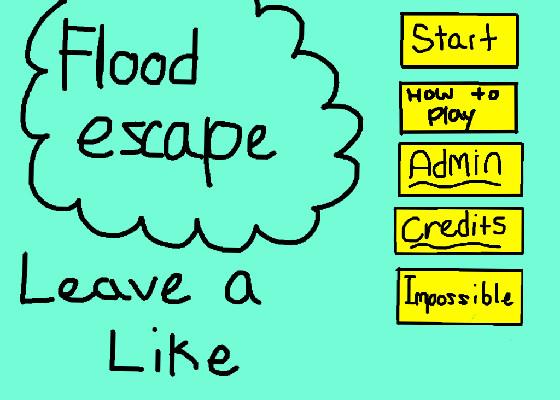 Flood
escape
Leave a
Like
Start
How to
play
Admin
Credits
Impossible